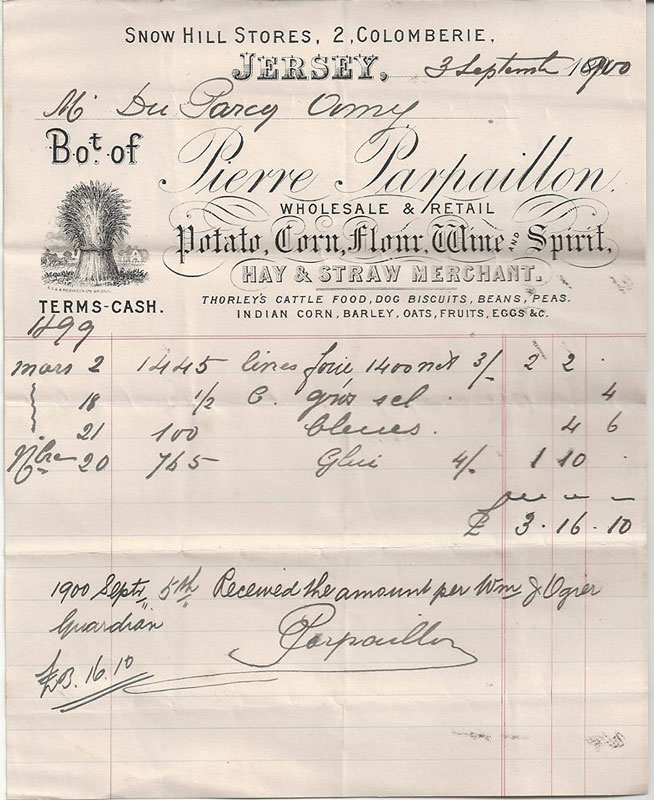 SNOW HILL STORES, 2, COLOMBERIE,
JERSEY, 3 Septemb 1900
Mr Du Parcq Amy
Bot. of Pierre Parpaillon.
WHOLESALE & RETAIL
Potato, Corn, Flour, Wine AND Spirit,
HAY & STRAW MERCHANT.
TERMS-CASH.
THORLEY'S CATTLE FOOD, DOG BISCUITS, BEANS, PEAS.
INDIAN CORN, BARLEY, OATS, FRUITS, EGGS &C.
1899
mars 2 1445 livres 1400 net 3/- 2 2 .
18 1/2 C. gros sel . 4
21 100 bleues . 4 6
Nbre 20 765 4/- 1 10 .
£ 3 . 16 . 10
1900 Septr 5th Received the amount per Wm J Ogier
Guardian
Parpaillon
£3. 16. 10